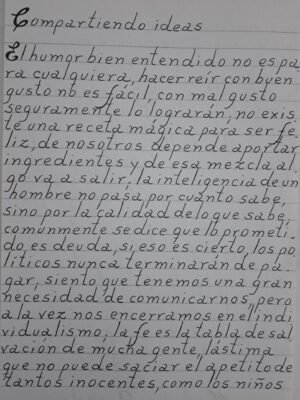 Compartiendo ideas
El humor bien entendido no es pa
ra cualquiera, hacer reír con buen
gusto no es fácil, con mal gusto
seguramente lo lograrán, no exis
te una receta mágica para ser fe
liz, de nosotros depende aportar
ingredientes y de esa mezcla al-
go va a salir, la inteligencia de un
hombre no pasa por cuanto sabe,
sino por la calidad de lo que sabe,
comúnmente se dice que lo prometi-
do es deuda, si eso es cierto, los po
líticos nunca terminarán de pa-
gar, siento que tenemos una gran
necesidad de comunicarnos, pero
a la vez nos encerramos en el indi
vidualismo, la fe es la tabla de sal
vación de mucha gente, lástima
que no puede saciar el apetito de
tantos inocentes, como los niños